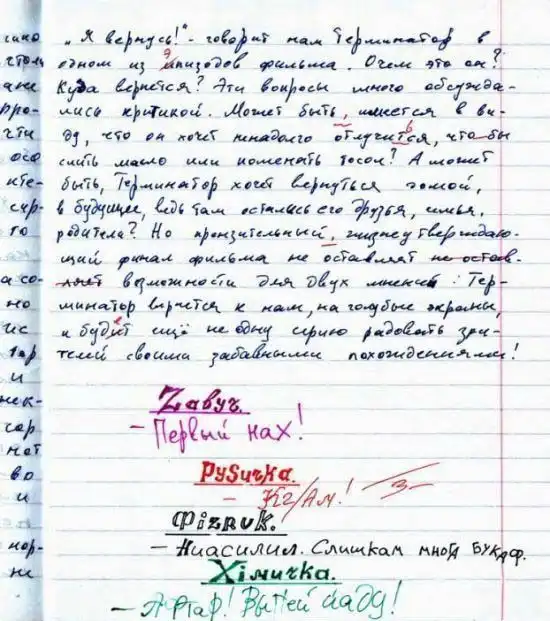 „Я вернусь!" - говорит нам Терминатор в
одном из эпизодов фильма. О чем это он?
Куда вернется? Эти вопросы много обсужда-
лись критикой. Может быть, имеется в ви-
ду, что он хочет ненадолго отлучится, что бы
слить масло или поменять тосол? А может
быть, Терминатор хочет вернуться домой,
в будущее, ведь там остались его друзья, семья,
родители? Но пронзительный, жизнеутверждаю-
щий финал фильма не оставляет не остав-
ляет возможности для двух мнений: Тер-
минатор вернется к нам, на голубые экраны,
и будет ещё не одну серию радовать зри-
телей своими забавными похождениями!
Zавуч.
- Первый нах!
РуSичка.
- КГ/Ам! 3-
Фiзrиk.
- Ниасилил. Слишкам многа букаф.
Хiмичка.
- Афтар! Выпей йаду!